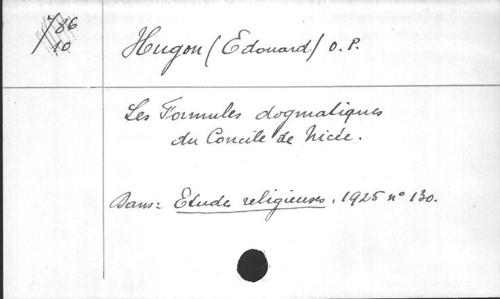 786
10
Hugon (Edouard) O. P.
Les Formules dogmatiques
du Concile de Nicée.
Dans: Etudes religieuses, 1925 n° 130.